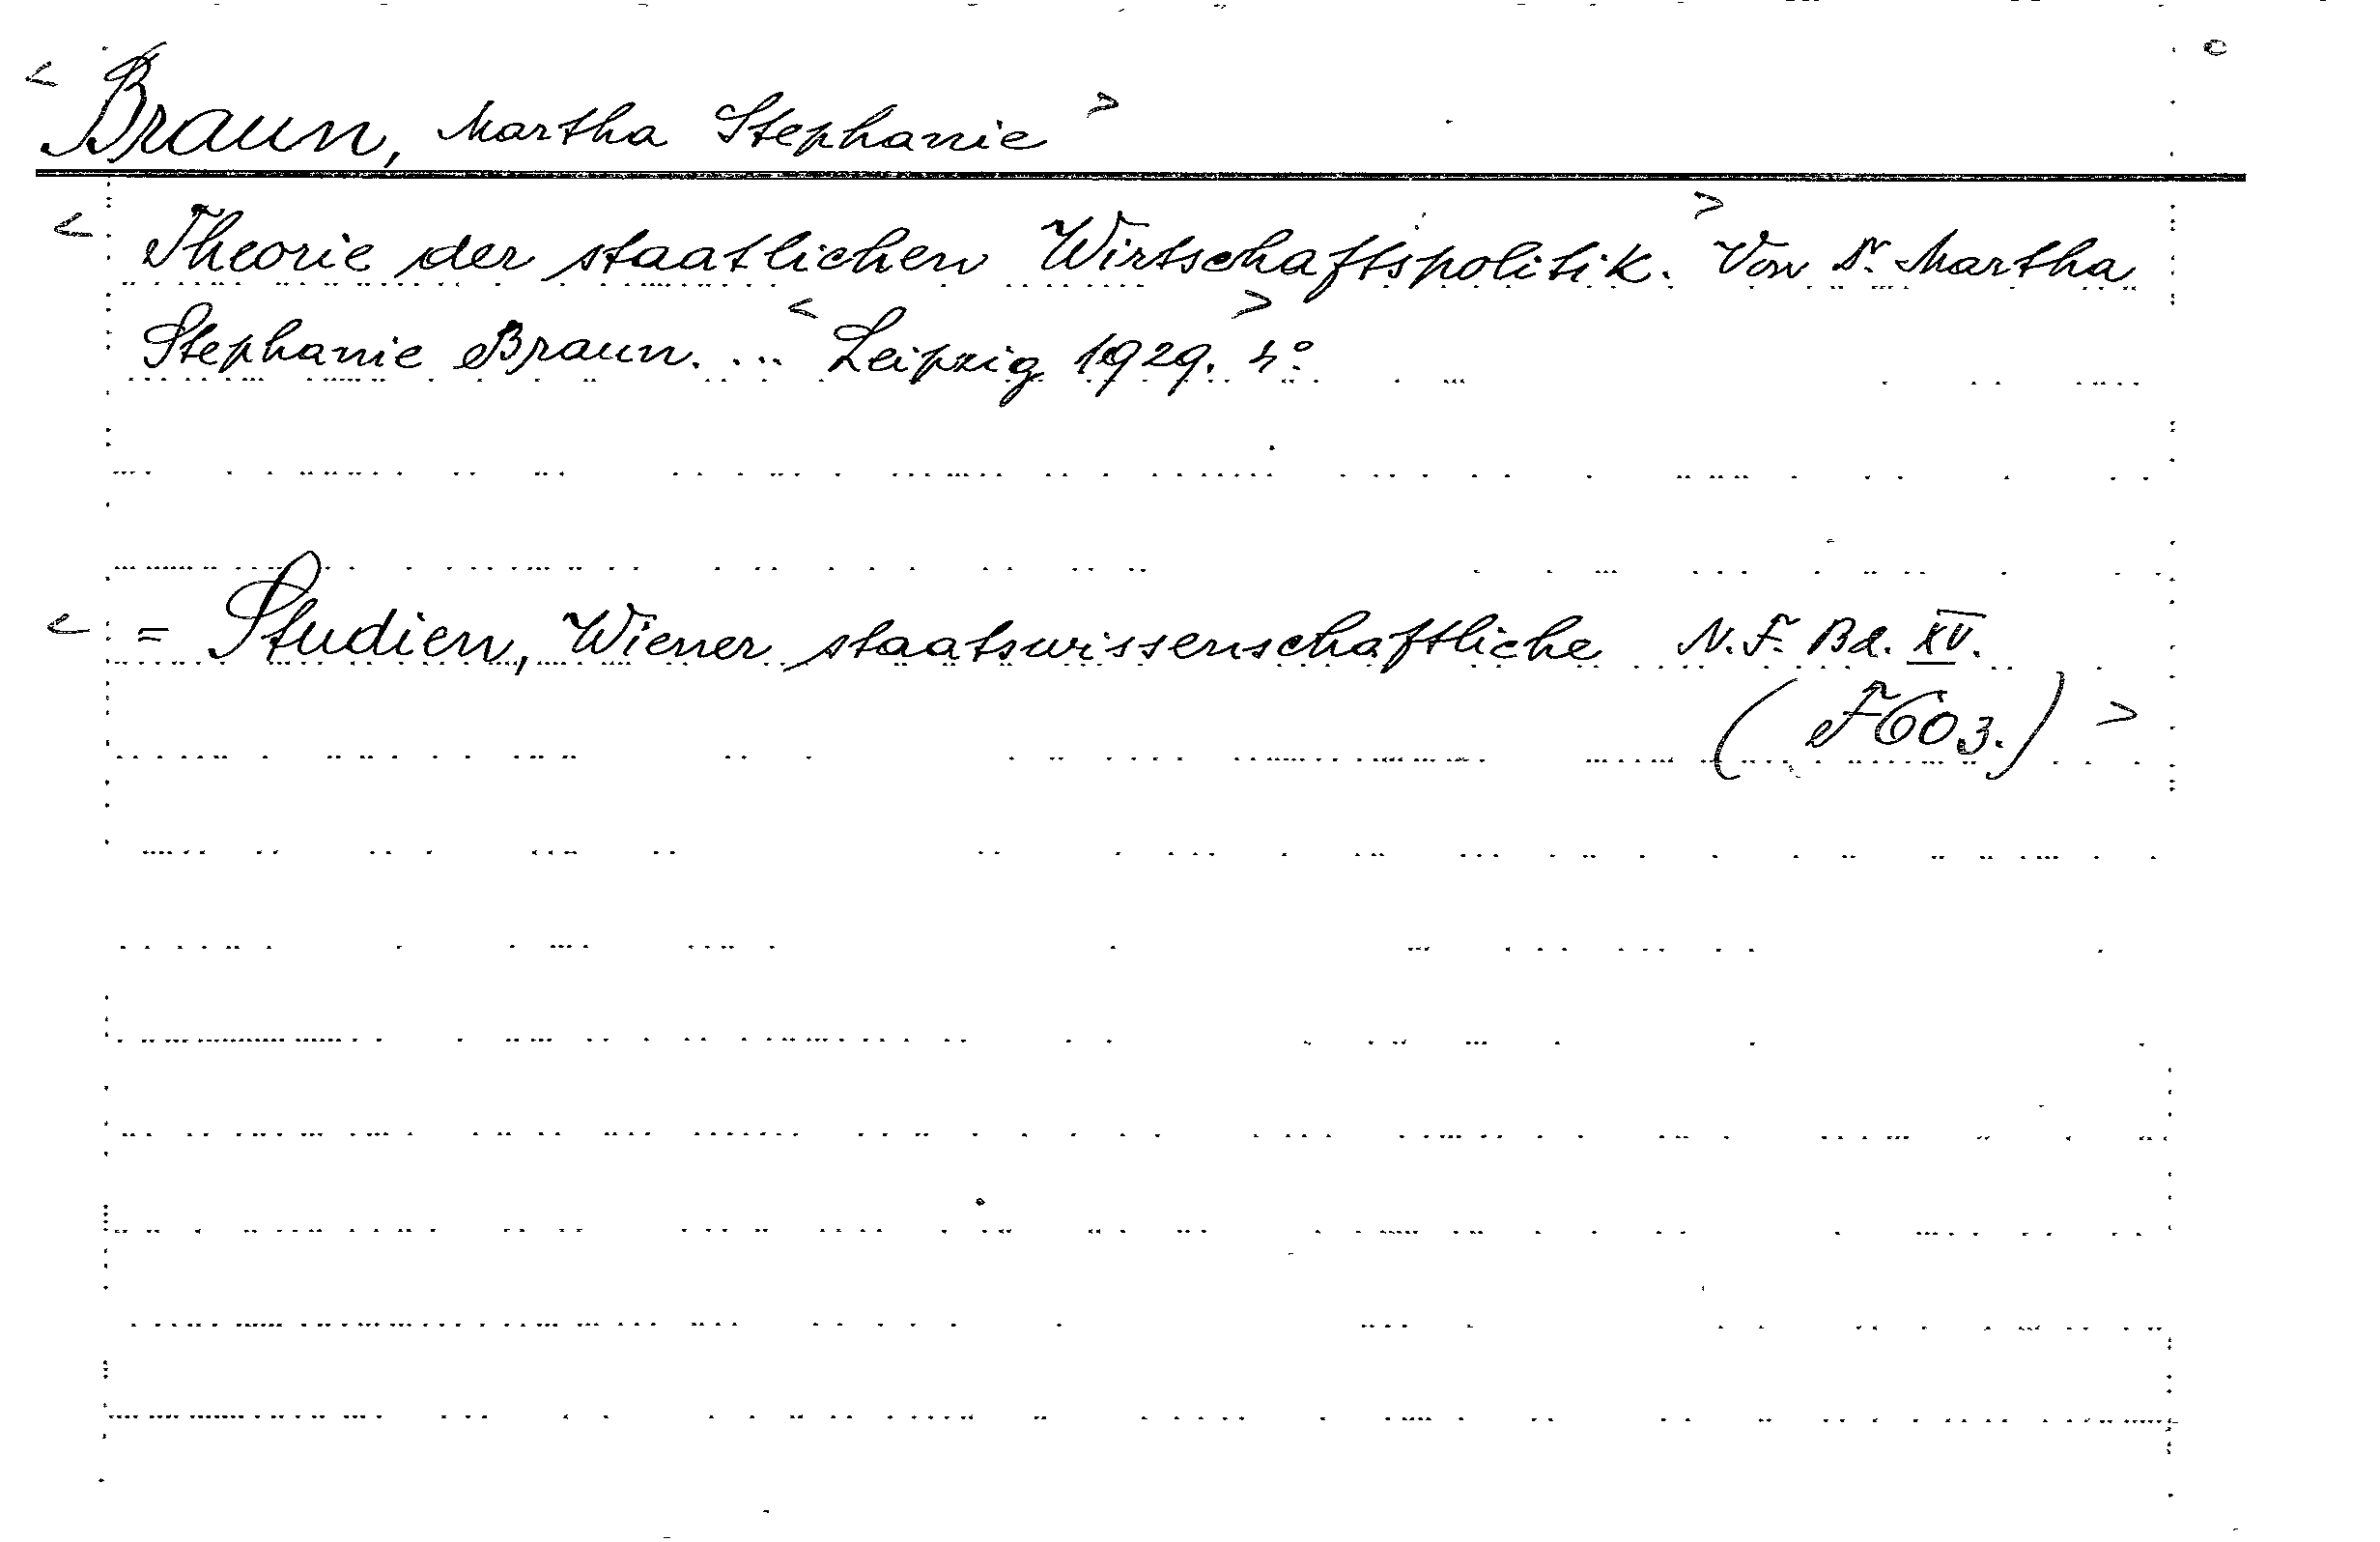 < Braun, Martha Stephanie >
< Theorie der staatlichen Wirtschaftspolitik. > Von Dr. Martha
Stephanie Braun. ... < Leipzig 1929. > 4°
< = Studien, Wiener staatswissenschaftliche N.F. Bd. XV.
(F603.) >